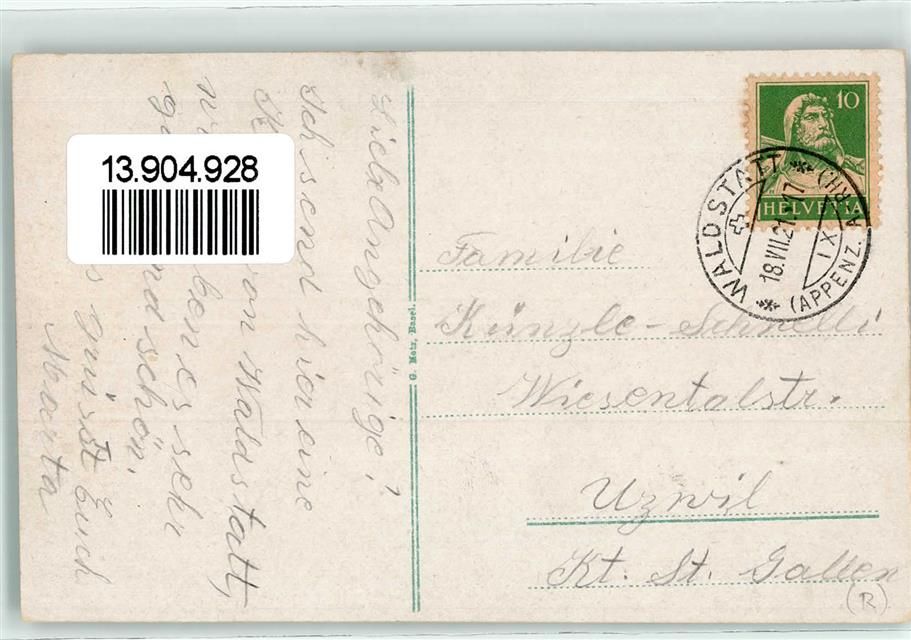 Lieb Angehörige!
Ich send hier eine
von Waldstatt,
wir ben es sehr
g und schön.
s grüsst Euch
Marta
13.904.928
G. Metz, Basel.
10
HELVETIA
WALDSTATT
18.VII.21.17
IX
(APPENZ. A.RH)
Familie
Künzle-Schnelli
Wiesentalstr.
Uzwil
Kt. St. Gallen
R